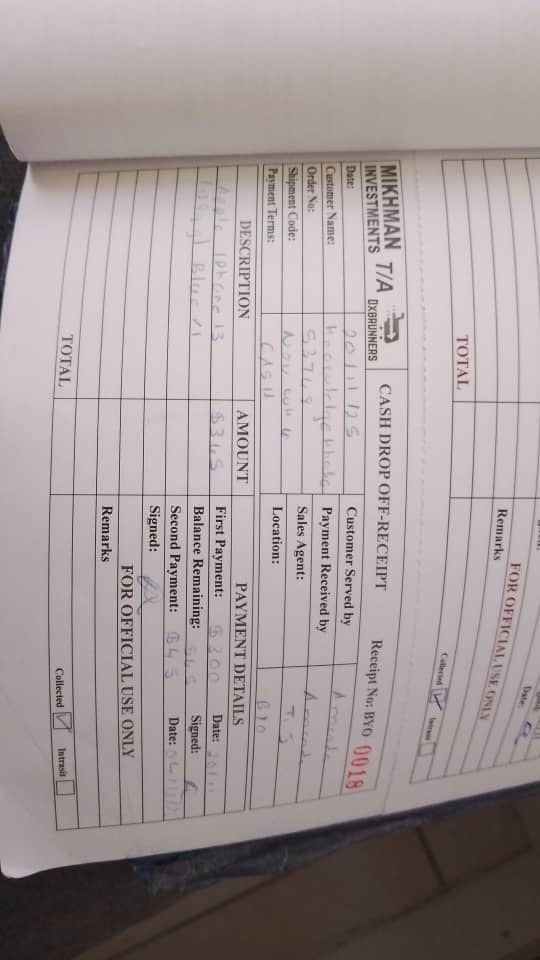 TOTAL
FOR OFFICIAL USE ONLY
Remarks
Date:
Collected Intrasit
MIKHMAN T/A DXBRUNNERS
INVESTMENTS
CASH DROP OFF-RECEIPT
Receipt No: BYO 0018
Date: 20/11/25
Customer Name:
Order No: 53748
Shipment Code: Nov
Payment Terms: CASH
Customer Served by
Payment Received by
Sales Agent:
Location: BYO
DESCRIPTION AMOUNT PAYMENT DETAILS
Apple iPhone 13 $345 First Payment: $300 Date: 20/11
Blue Balance Remaining: $45 Signed:
Second Payment: $45 Date:
Signed:
FOR OFFICIAL USE ONLY
Remarks
TOTAL
Collected Intrasit